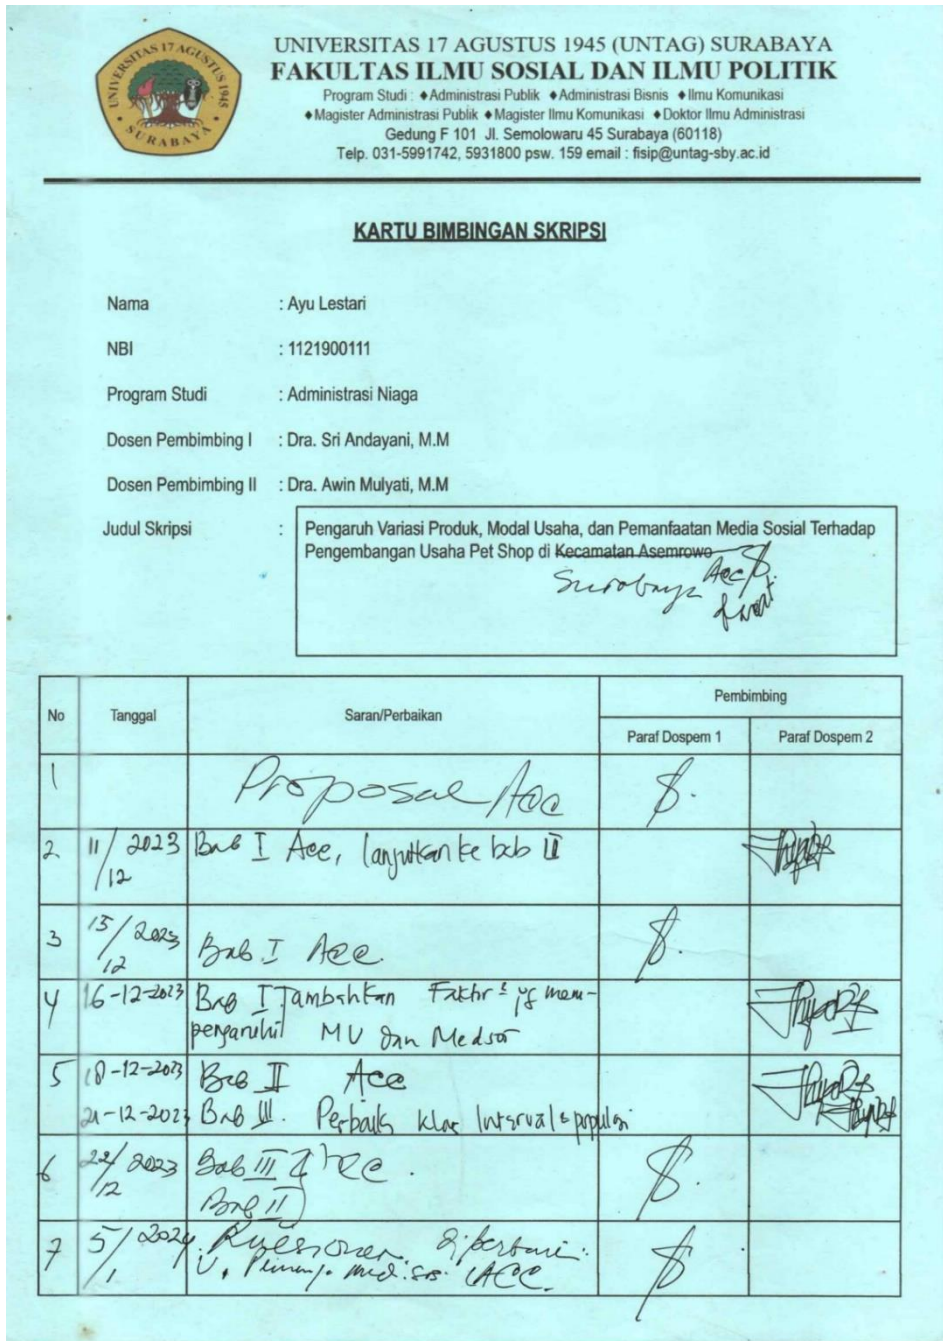 UNIVERSITAS 17 AGUSTUS 1945
SURABAYA
UNIVERSITAS 17 AGUSTUS 1945 (UNTAG) SURABAYA
FAKULTAS ILMU SOSIAL DAN ILMU POLITIK
Program Studi : ♦Administrasi Publik ♦Administrasi Bisnis ♦Ilmu Komunikasi
♦Magister Administrasi Publik ♦Magister Ilmu Komunikasi ♦Doktor Ilmu Administrasi
Gedung F 101 Jl. Semolowaru 45 Surabaya (60118)
Telp. 031-5991742, 5931800 psw. 159 email : fisip@untag-sby.ac.id
KARTU BIMBINGAN SKRIPSI
Nama : Ayu Lestari
NBI : 1121900111
Program Studi : Administrasi Niaga
Dosen Pembimbing I : Dra. Sri Andayani, M.M
Dosen Pembimbing II : Dra. Awin Mulyati, M.M
Judul Skripsi : Pengaruh Variasi Produk, Modal Usaha, dan Pemanfaatan Media Sosial Terhadap
Pengembangan Usaha Pet Shop di Kecamatan Asemrowo
Surabaya Acc
No Tanggal Saran/Perbaikan Pembimbing
Paraf Dospem 1 Paraf Dospem 2
1 Proposal Acc
2 11/12 2023 Bab I Acc, lanjutkan ke bab II
3 15/12 2023 Bab I Acc.
4 16-12-2023 Bab II Tambahkan Faktor² yg mem-
pengaruhi MU dan Medsos
5 18-12-2023 Bab II Acc
21-12-2023 Bab III. Perbaiki klas Interval & populasi
6 22/12 2023 Bab III Acc.
Bab II
7 5/1 2024 Kuesioner diperbaiki.
ACC.